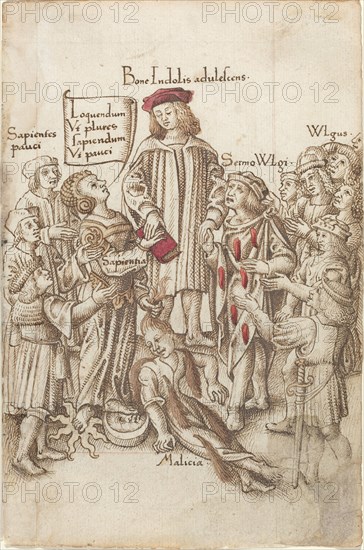 Bone Indolis adulescens.
Loquendum
Vt plures
Sapiendum
Vt pauci
Sapientes
pauci
Sermo Wlgi.
Wlgus.
Sapientia
Malicia.
PHOTO 12
PHOTO 12
PHOTO 12
PHOTO 12
PHOTO 12
PHOTO 12